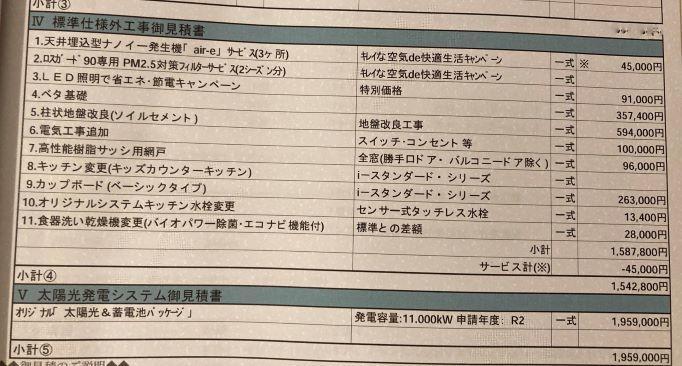 小計③
Ⅳ 標準仕様外工事御見積書
1.天井埋込型ナノイー発生機「air-e」サービス(3ヶ所) キレイな空気de快適生活キャンペーン 一式 ※ 45,000円
2.ロスガード90専用PM2.5対策フィルターサービス(2シーズン分) キレイな空気de快適生活キャンペーン 一式
3.LED照明で省エネ・節電キャンペーン 特別価格 一式 91,000円
4.ベタ基礎 一式 357,400円
5.柱状地盤改良(ソイルセメント) 地盤改良工事 一式 594,000円
6.電気工事追加 スイッチ・コンセント等 一式 100,000円
7.高性能樹脂サッシ用網戸 全窓(勝手口ドア・バルコニードア除く) 一式 96,000円
8.キッチン変更(キッズカウンターキッチン) i-スタンダード・シリーズ 一式
9.カップボード(ベーシックタイプ) i-スタンダード・シリーズ 一式 263,000円
10.オリジナルシステムキッチン水栓変更 センサー式タッチレス水栓 一式 13,400円
11.食器洗い乾燥機変更(バイオパワー除菌・エコナビ機能付) 標準との差額 一式 28,000円
小計 1,587,800円
サービス計(※) -45,000円
小計④ 1,542,800円
Ⅴ 太陽光発電システム御見積書
オリジナル「太陽光&蓄電池パッケージ」 発電容量:11.000kW 申請年度: R2 一式 1,959,000円
小計⑤ 1,959,000円
◆◆御見積のご説明◆◆